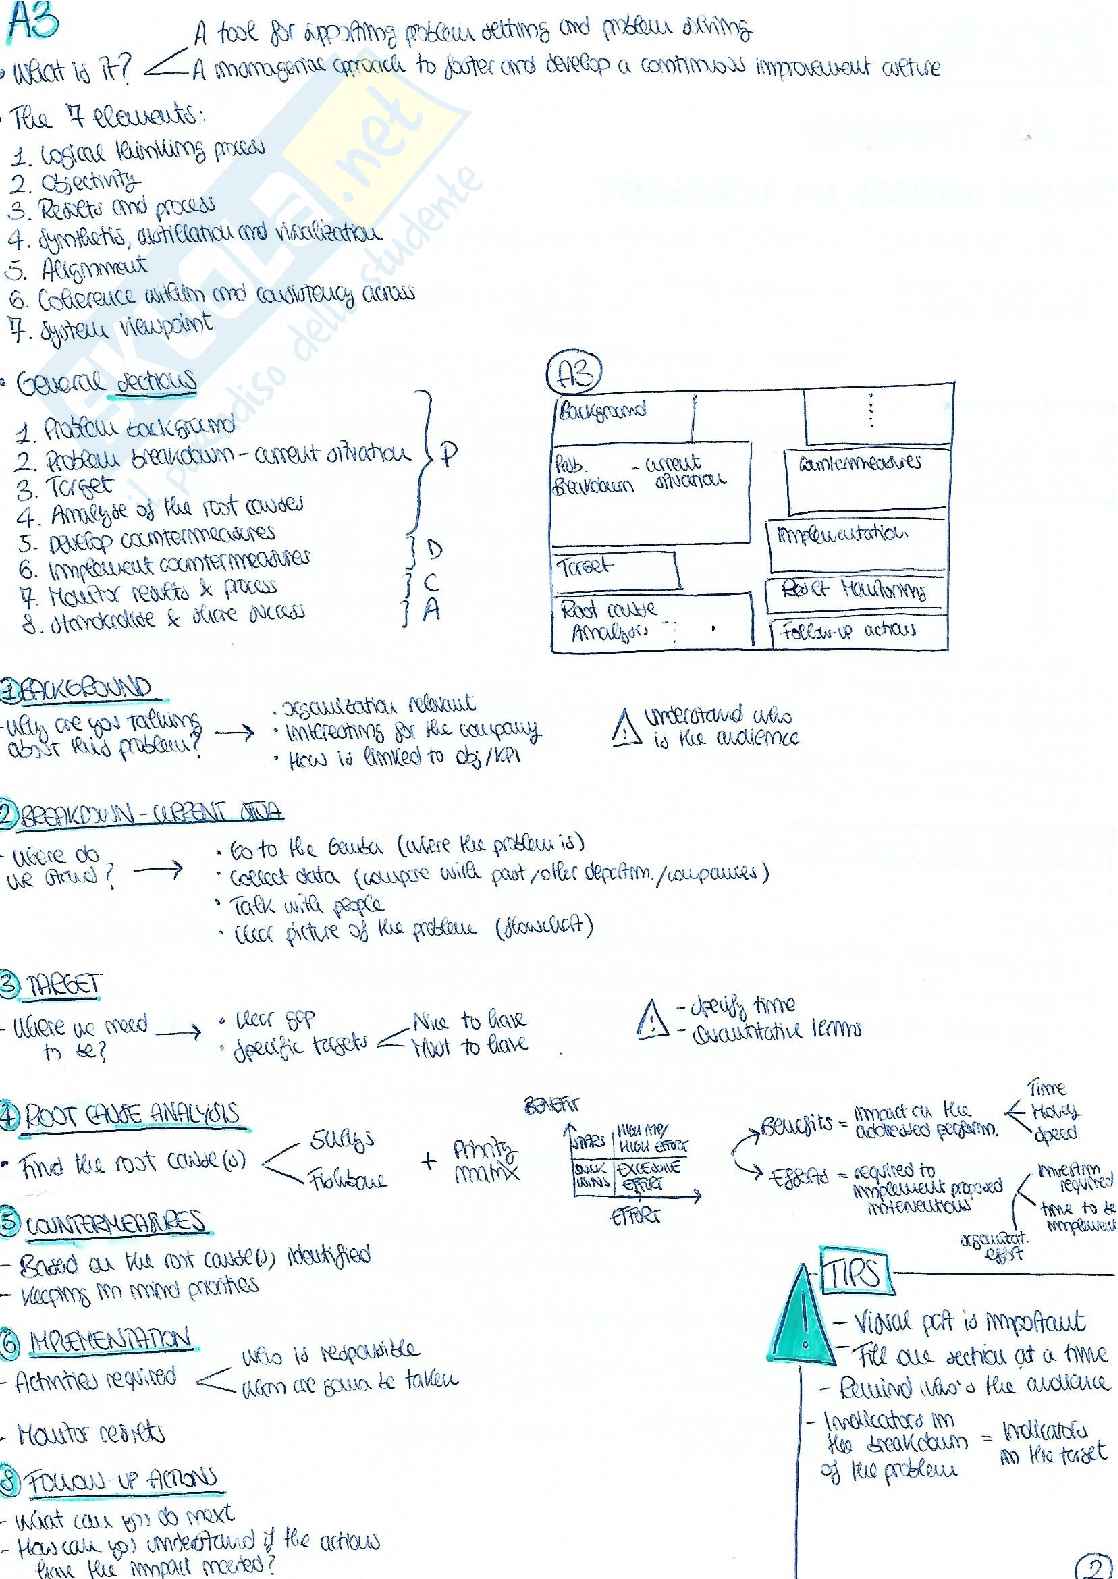 A3
A tool for supporting problem setting and problem solving
• What is it?
A managerial approach to foster and develop a continuous improvement culture
• The 7 elements:
1. Logical thinking process
2. Objectivity
3. Results and process
4. Synthesis, distillation and visualization
5. Alignment
6. Coherence within and consistency across
7. System viewpoint
• General sections
1. Problem background
2. Problem breakdown - current situation
3. Target
4. Analyse of the root causes
5. Develop countermeasures
P
6. Implement countermeasures
D
7. Monitor results & process
C
8. Standardise & share success
A
A3
Background
Prob. - current
Breakdown situation
Target
Root cause
Analysis
Countermeasures
Implementation
Result Monitoring
Follow-up actions
1 BACKGROUND
- Why are you talking
about this problem?
• organization relevant
• interesting for the company
• How is linked to obj/KPI
! understand who
is the audience
2 BREAKDOWN - CURRENT SITUA
- Where do
we stand?
• Go to the Gemba (where the problem is)
• collect data (compare with past/other departm./companies)
• Talk with people
• clear picture of the problem (flowchart)
3 TARGET
- Where we need
to be?
• clear gap
• specific targets
Nice to have
Must to have
! - specify time
- Quantitative terms
4 ROOT CAUSE ANALYSIS
• Find the root cause(s)
5 Whys
Fishbone
+ Priority
matrix
BENEFIT
HIGH EFFORT
QUICK
WINS
EXCESSIVE
EFFORT
EFFORT
Benefits = impact on the
addressed perform.
Time
Money
Speed
Efforts = required to
implement proposed
interventions
required
time to be
implement
organizat.
effort
5 COUNTERMEASURES
- Based on the root cause(s) identified
- Keeping in mind priorities
6 IMPLEMENTATION
- Activities required
who is responsible
when are gonna be taken
- Monitor results
8 FOLLOW UP ACTIONS
- What can you do next
- How can you understand if the actions
have the impact needed?
! TIPS
- Visual part is important
- Fill one section at a time
- Remind who's the audience
- Indicators in
the breakdown
of the problem
= indicators
in the target
2
SKUOLA.net
il paradiso dello studente